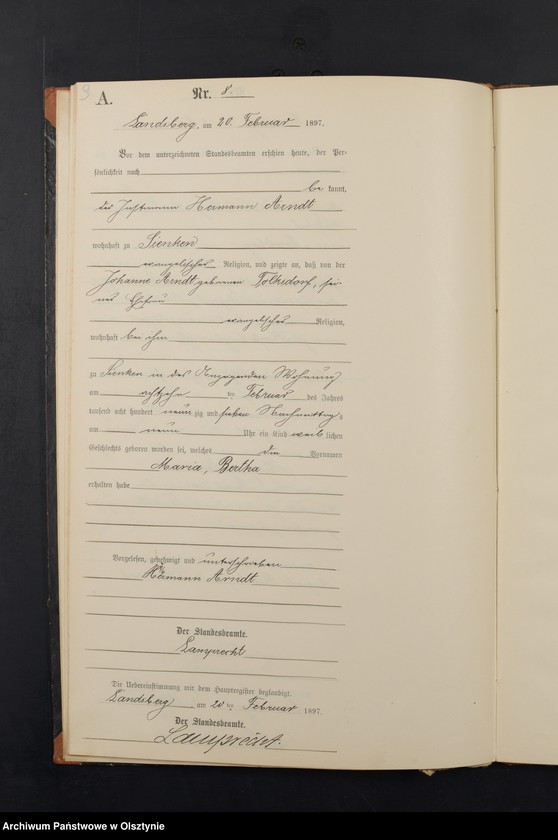 9
A.
Nr. 8.
Landsberg, am 20. Februar 1897.
Vor dem unterzeichneten Standesbeamten erschien heute, der Per-
sönlichkeit nach
be kannt,
der Instmann Hermann Arndt
wohnhaft zu Sienken
evangelischer Religion, und zeigte an, daß von der
Johanne Arndt geborenen Tolksdorf, sei-
ner Ehefrau
evangelischer Religion,
wohnhaft bei ihm
zu Sienken in des Anzeigenden Wohnung
am achtzehn ten Februar des Jahres
tausend acht hundert neun zig und sieben Nachmittags
um neun Uhr ein Kind weib lichen
Geschlechts geboren worden sei, welches die Vornamen
Maria, Bertha
erhalten habe
Vorgelesen, genehmigt und unterschrieben
Hermann Arndt
Der Standesbeamte.
Lamprecht
Die Uebereinstimmung mit dem Hauptregister beglaubigt.
Landsberg am 20 ten Februar 1897.
Der Standesbeamte.
Lamprecht.
Archiwum Państwowe w Olsztynie